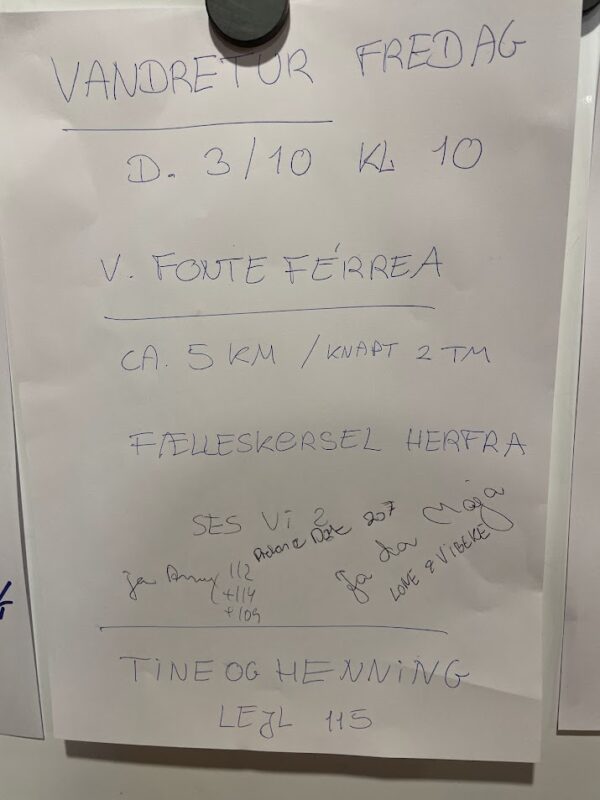 VANDRETUR FREDAG
D. 3/10 KL 10
V. FONTE FÉRREA
CA. 5 KM / KNAPT 2 TM
FÆLLESKØRSEL HERFRA
SES Vi 2
207
Ja 112
+114
+109
Ja
LONE & VIBEKE
TINE OG HENNING
LEJL 115